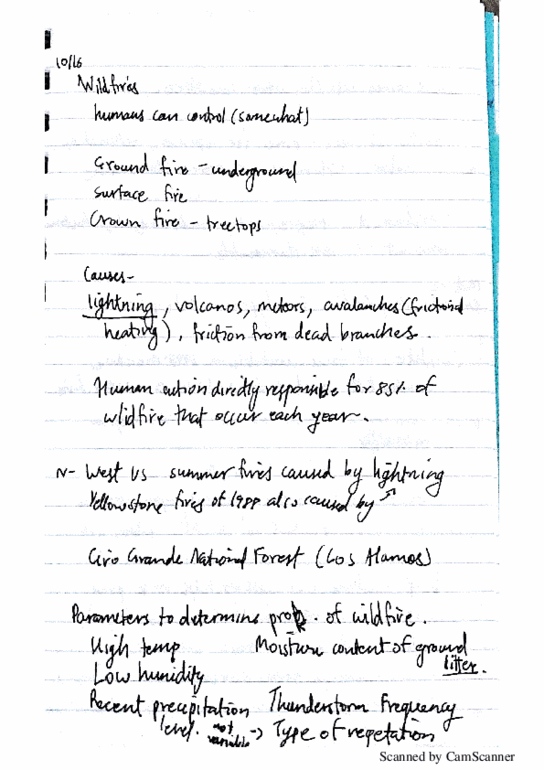 10/16
Wildfires
humans can control (somewhat)
Ground fire - underground
Surface fire
Crown fire - treetops
Causes-
lightning, volcanos, meteors, avalanches (frictional
heating), friction from dead branches.
Human action directly responsible for 85% of
wildfire that occur each year.
N- West US summer fires caused by lightning
Yellowstone fires of 1988 also caused by ↗
Grande National Forest (Los Alamos)
Parameters to determine prob. of wildfire.
High temp Moisture content of ground
litter.
Low humidity
Recent precipitation Thunderstorm Frequency
level. not variable -> Type of vegetation
Scanned by CamScanner